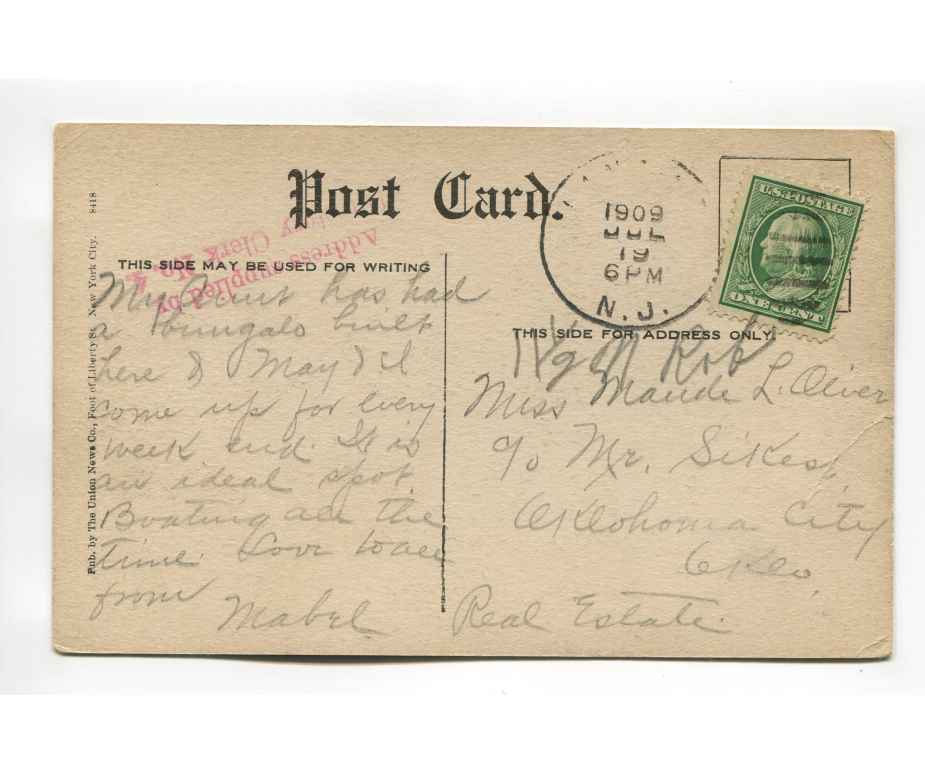 Post Card.
THIS SIDE MAY BE USED FOR WRITING
My Aunt has had
a Bungalo built
here & May & I
come up for every
week end. It is
an ideal spot.
Boating all the
time. Love to all
from
Mabel
Pub. by The Union News Co., Foot of Liberty St. New York City. 8418
Address supplied by
Clerk No.
1909
JUL
19
6 PM
N. J.
U.S. POSTAGE
ONE CENT
THIS SIDE FOR ADDRESS ONLY.
Miss Maude L. Oliver
c/o Mr. Sikes,
Oklohoma City
Oklo
Real Estate.